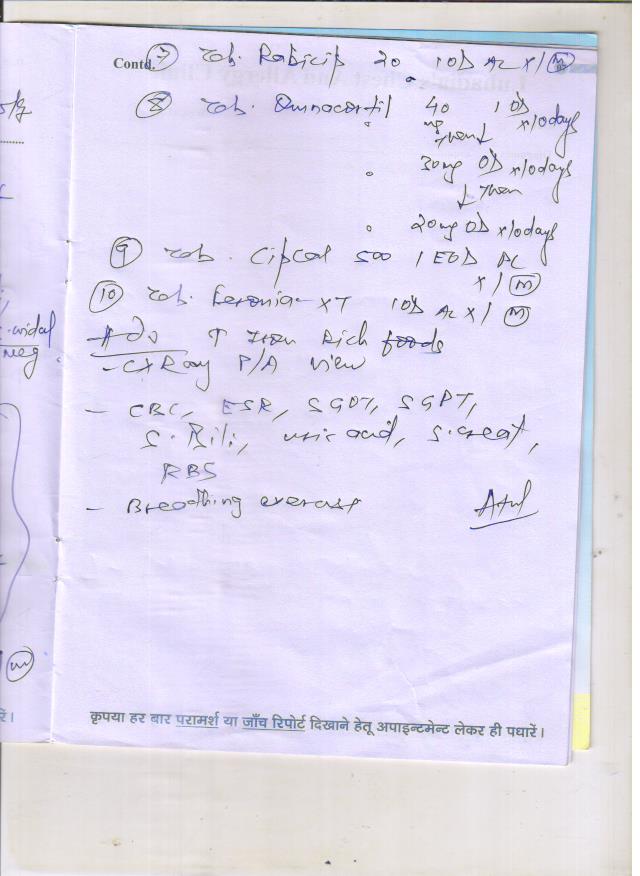 Contd. 7 Tab. Rabicip 20 1 OD AC x 1 m
8 Tab. Omnacortil 40 mg 1 OD x10days
then ↓
30mg OD x10days
↓ then
20mg OD x10days
9 Tab. Cipcal 500 1 EOD AC
x 1 m
10 Tab. Feronia-XT 1 OD AC x 1 m
Adv ↑ Iron Rich foods
- CXRay P/A view
- CBC, ESR, SGOT, SGPT,
S. Bili, uric acid, S. creat,
RBS
- Breathing exercise
widal
neg
m
कृपया हर बार परामर्श या जाँच रिपोर्ट दिखाने हेतू अपाइन्टमेन्ट लेकर ही पधारें।
रें।